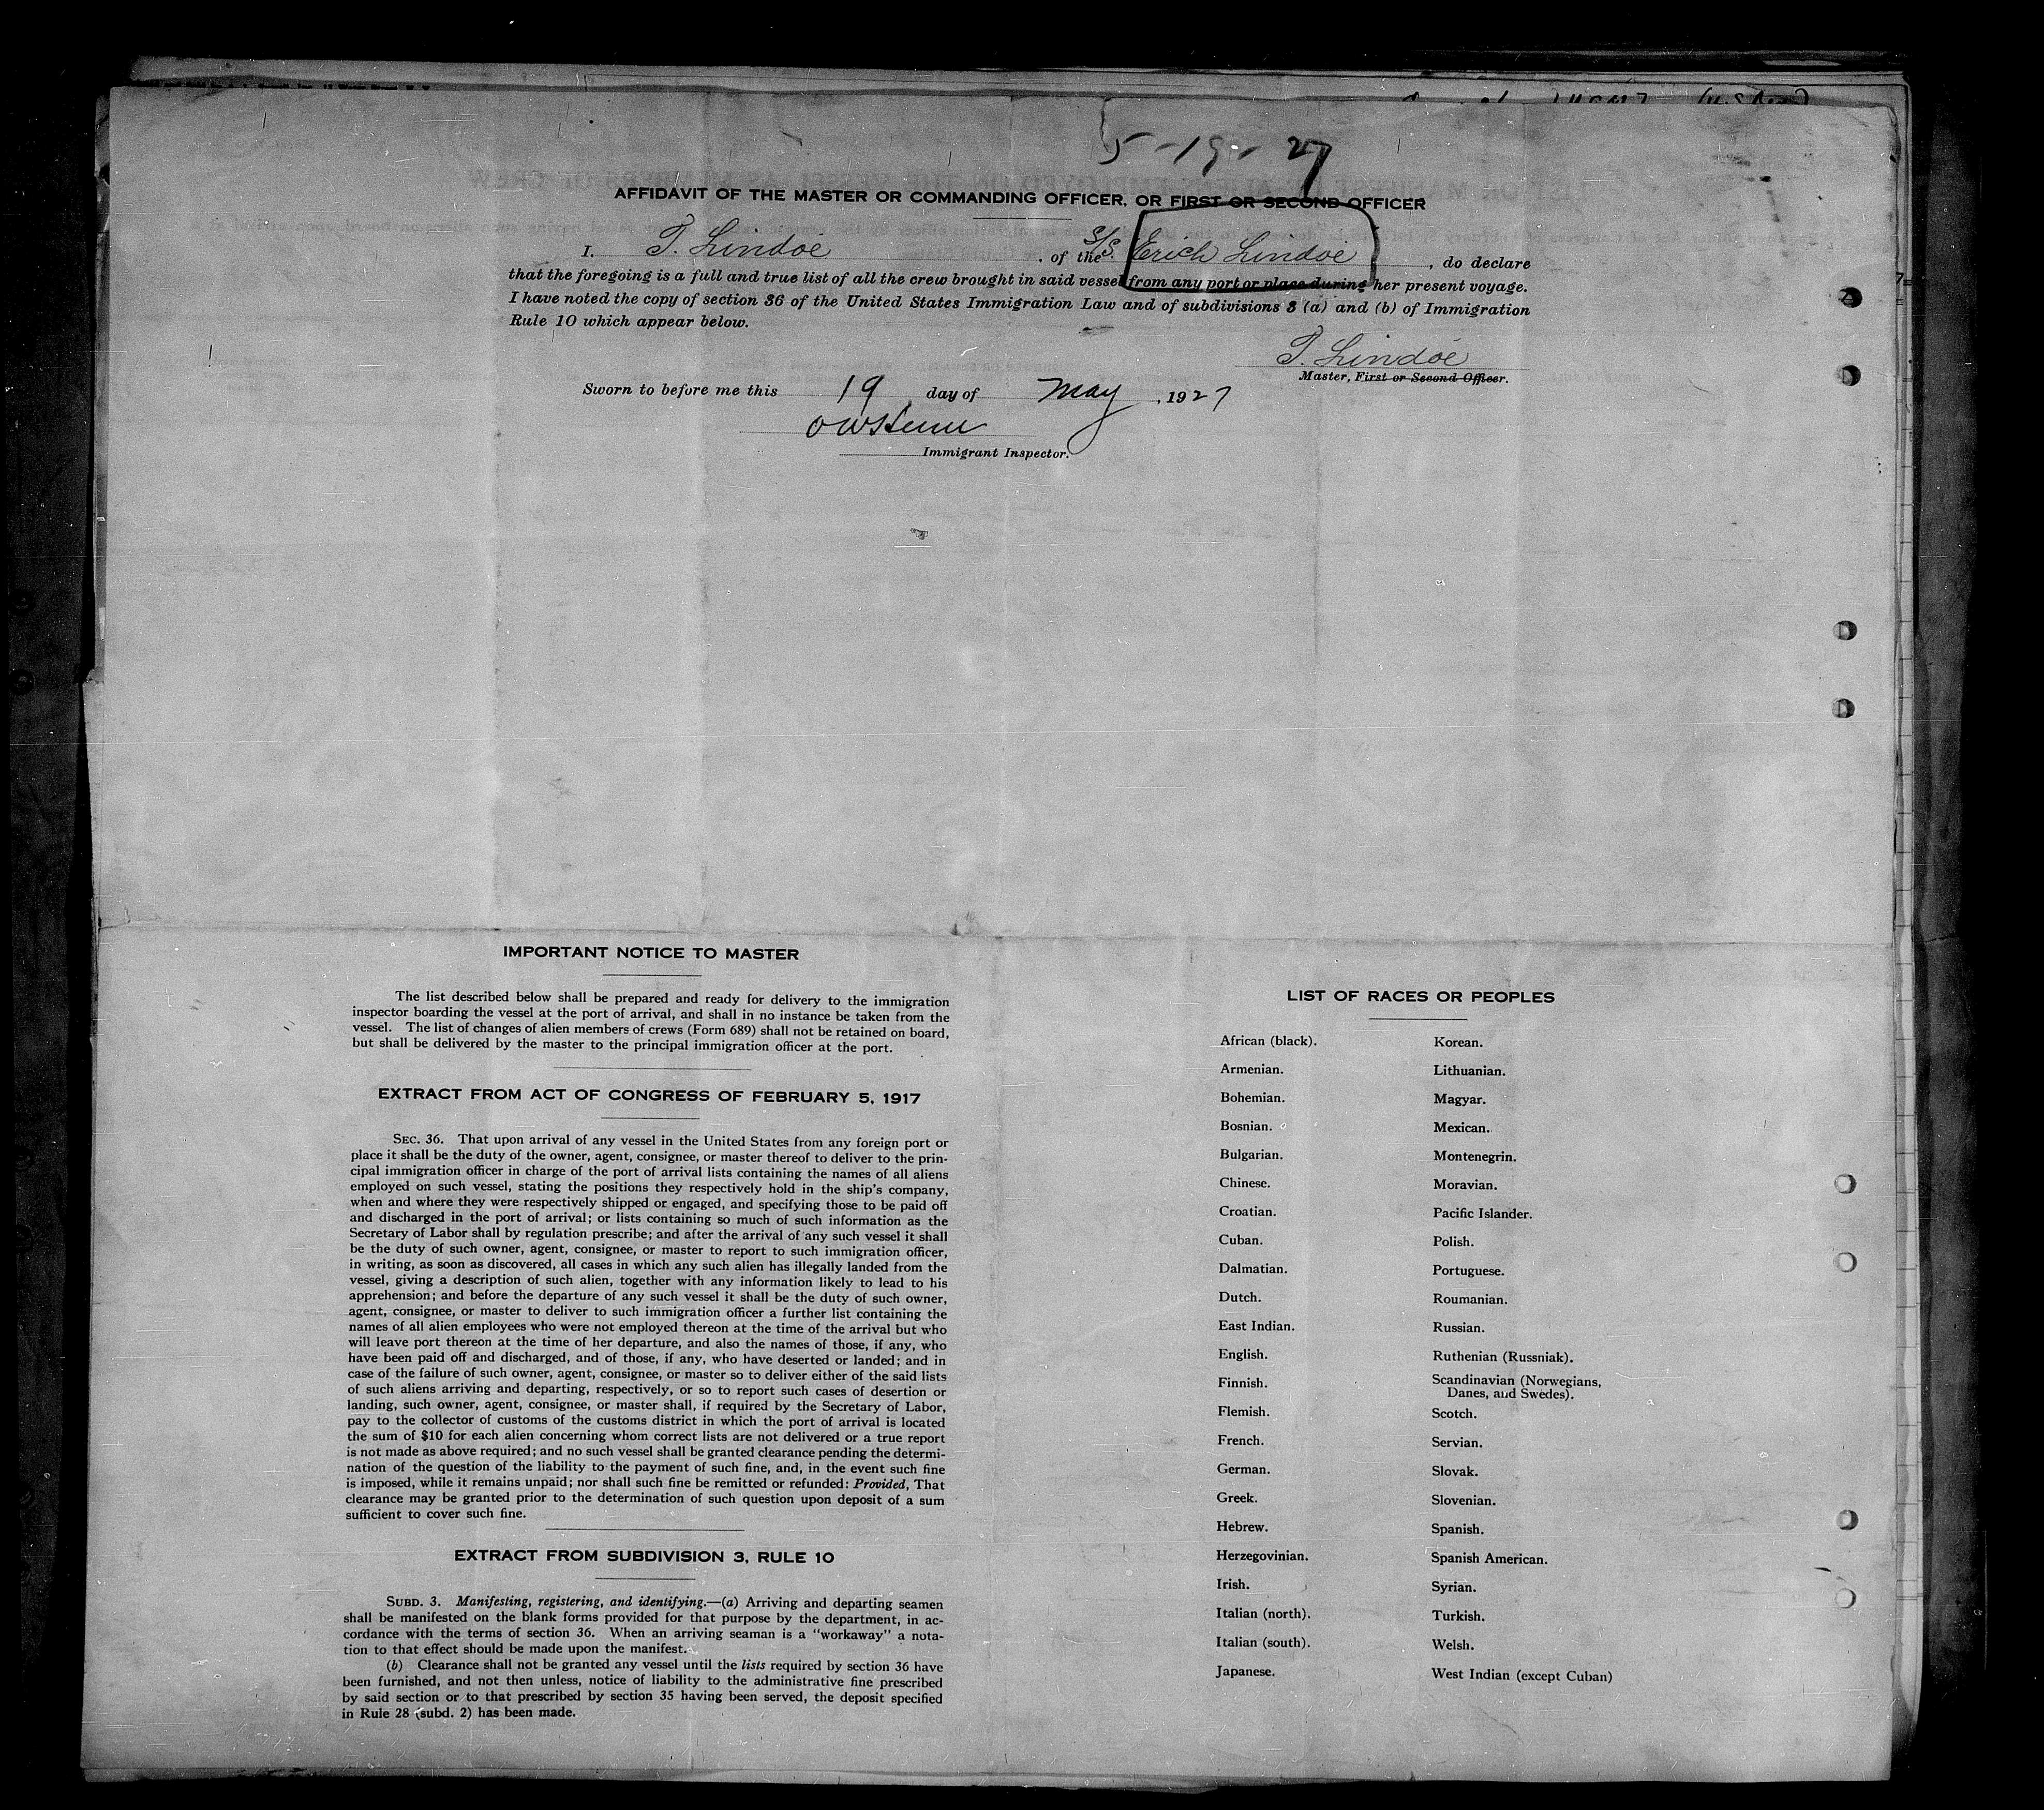 5-19-27
AFFIDAVIT OF THE MASTER OR COMMANDING OFFICER, OR FIRST OR SECOND OFFICER
I. T. Lindoe, of the S/S. Erich Lindoe, do declare
that the foregoing is a full and true list of all the crew brought in said vessel from any port or place during her present voyage.
I have noted the copy of section 36 of the United States Immigration Law and of subdivisions 3 (a) and (b) of Immigration
Rule 10 which appear below.
T. Lindoe
Master, First or Second Officer.
Sworn to before me this 19 day of May, 1927
Immigrant Inspector.
IMPORTANT NOTICE TO MASTER
The list described below shall be prepared and ready for delivery to the immigration
inspector boarding the vessel at the port of arrival, and shall in no instance be taken from the
vessel. The list of changes of alien members of crews (Form 689) shall not be retained on board,
but shall be delivered by the master to the principal immigration officer at the port.
EXTRACT FROM ACT OF CONGRESS OF FEBRUARY 5, 1917
SEC. 36. That upon arrival of any vessel in the United States from any foreign port or
place it shall be the duty of the owner, agent, consignee, or master thereof to deliver to the prin-
cipal immigration officer in charge of the port of arrival lists containing the names of all aliens
employed on such vessel, stating the positions they respectively hold in the ship's company,
when and where they were respectively shipped or engaged, and specifying those to be paid off
and discharged in the port of arrival; or lists containing so much of such information as the
Secretary of Labor shall by regulation prescribe; and after the arrival of any such vessel it shall
be the duty of such owner, agent, consignee, or master to report to such immigration officer,
in writing, as soon as discovered, all cases in which any such alien has illegally landed from the
vessel, giving a description of such alien, together with any information likely to lead to his
apprehension; and before the departure of any such vessel it shall be the duty of such owner,
agent, consignee, or master to deliver to such immigration officer a further list containing the
names of all alien employees who were not employed thereon at the time of the arrival but who
will leave port thereon at the time of her departure, and also the names of those, if any, who
have been paid off and discharged, and of those, if any, who have deserted or landed; and in
case of the failure of such owner, agent, consignee, or master so to deliver either of the said lists
of such aliens arriving and departing, respectively, or so to report such cases of desertion or
landing, such owner, agent, consignee, or master shall, if required by the Secretary of Labor,
pay to the collector of customs of the customs district in which the port of arrival is located
the sum of $10 for each alien concerning whom correct lists are not delivered or a true report
is not made as above required; and no such vessel shall be granted clearance pending the determi-
nation of the question of the liability to the payment of such fine, and, in the event such fine
is imposed, while it remains unpaid; nor shall such fine be remitted or refunded: Provided, That
clearance may be granted prior to the determination of such question upon deposit of a sum
sufficient to cover such fine.
EXTRACT FROM SUBDIVISION 3, RULE 10
SUBD. 3. Manifesting, registering, and identifying.—(a) Arriving and departing seamen
shall be manifested on the blank forms provided for that purpose by the department, in ac-
cordance with the terms of section 36. When an arriving seaman is a "workaway" a nota-
tion to that effect should be made upon the manifest.
(b) Clearance shall not be granted any vessel until the lists required by section 36 have
been furnished, and not then unless, notice of liability to the administrative fine prescribed
by said section or to that prescribed by section 35 having been served, the deposit specified
in Rule 28 (subd. 2) has been made.
LIST OF RACES OR PEOPLES
African (black).
Armenian.
Bohemian.
Bosnian.
Bulgarian.
Chinese.
Croatian.
Cuban.
Dalmatian.
Dutch.
East Indian.
English.
Finnish.
Flemish.
French.
German.
Greek.
Hebrew.
Herzegovinian.
Irish.
Italian (north).
Italian (south).
Japanese.
Korean.
Lithuanian.
Magyar.
Mexican.
Montenegrin.
Moravian.
Pacific Islander.
Polish.
Portuguese.
Roumanian.
Russian.
Ruthenian (Russniak).
Scandinavian (Norwegians,
Danes, and Swedes).
Scotch.
Servian.
Slovak.
Slovenian.
Spanish.
Spanish American.
Syrian.
Turkish.
Welsh.
West Indian (except Cuban)